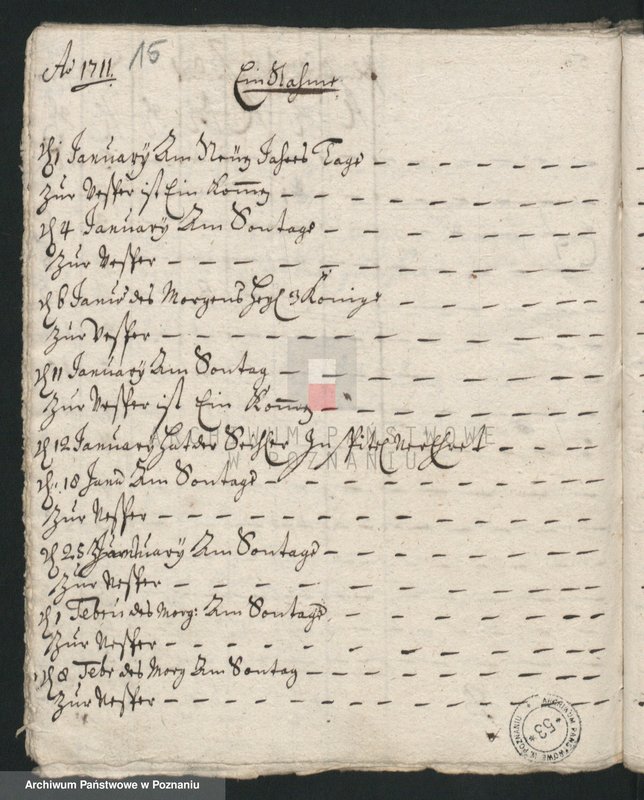 Ao 1711. 15
Ein Nahme
d 1 January Am Neüen Jahres Tage
Zur Vesper ist Ein Kommen
d 4 January Am Sontage
Zur Vesper
d 6 Janur des Morgens Heyl 3 Könige
Zur Vesper
d 11 January Am Sontag
Zur Vesper ist Ein Kommen
d 12 January Hat der
d. 18 Janu Am Sontage
Zur Vesper
d 25 January Am Sontage
Zur Vesper
d 1 Febru des Morg: Am Sontage
Zur Vesper
d 8 Febr des Morg Am Sontag
Zur Vesper
ARCHIWUM PAŃSTWOWE
W POZNANIU
ARCHIWUM PAŃSTWOWE W POZNANIU
* 53 *
Archiwum Państwowe w Poznaniu